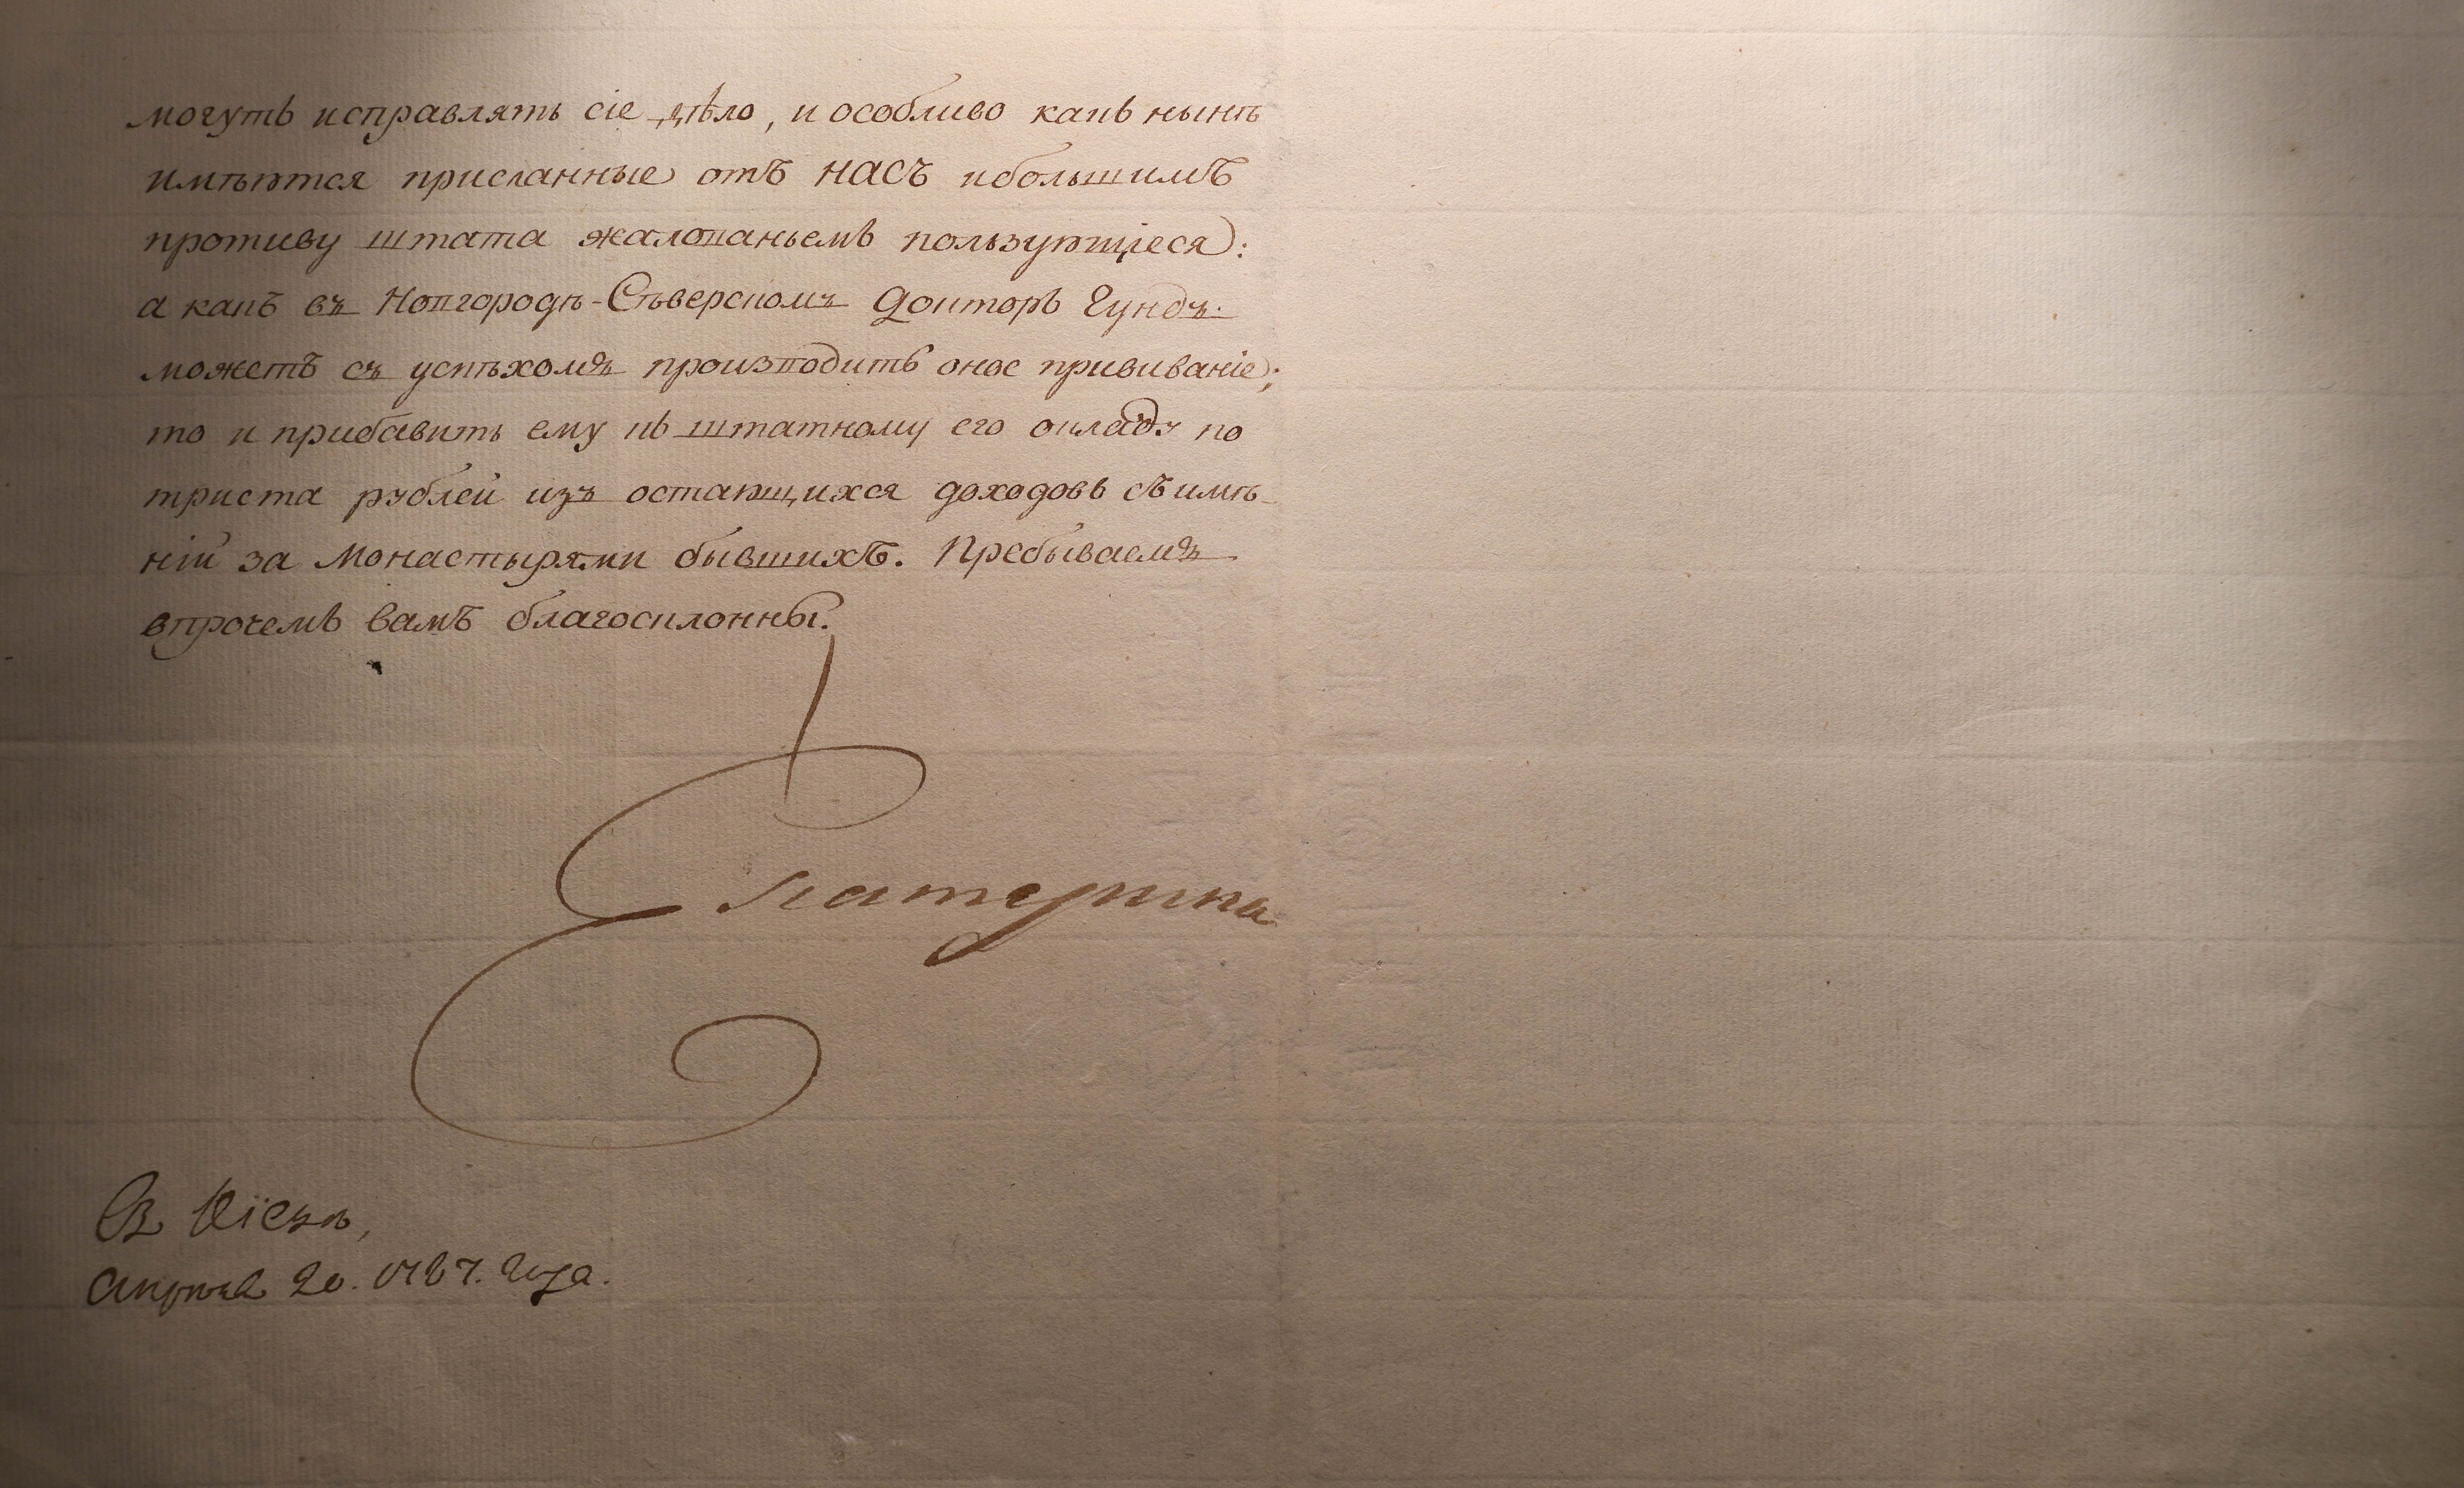 могутъ исправлять сіе дѣло, и особливо какъ нынѣ
имѣются присланные отъ НАСЪ и большимъ
противу штата жалованьемъ пользующіеся:
а какъ въ Новгородѣ-Сѣверскомъ Докторъ Гундъ
можетъ съ успѣхомъ производить оное прививаніе;
то и прибавить ему къ штатному его окладу по
триста рублей изъ остающихся доходовъ съ имѣ-
ній за монастырями бывшихъ. Пребываемъ
впрочемъ вамъ благосклонны.
Екатерина
Въ Кіевѣ,
Апрѣля 20. 1787. года.